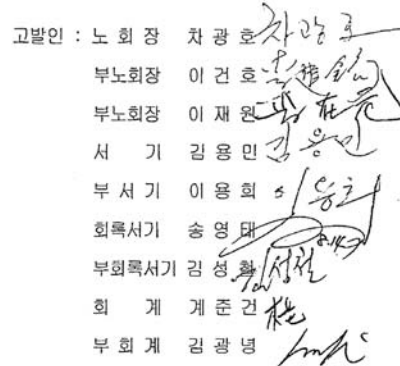 고발인 : 노 회 장 차 광 호 차광호
부노회장 이 건 호
부노회장 이 재 원
서 기 김 용 민 김용민
부 서 기 이 용 희 이용희
회록서기 송 영 태
부회록서기 김 성 철 김성철
회 계 계 준 건
부 회 계 김 광 녕